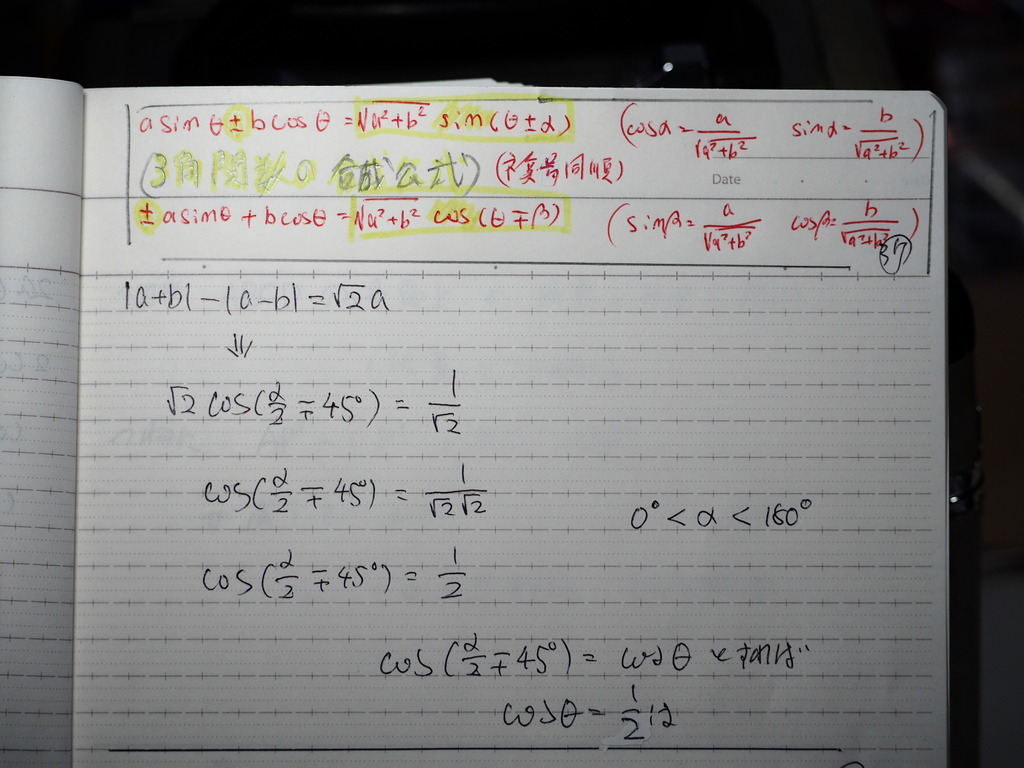 a sin θ ± b cos θ = √a²+b² sin(θ±α) (cosα = a/√a²+b² sinα = b/√a²+b²)
(3角関数の合成公式) (複号同順)
Date
± a sinθ + b cosθ = √a²+b² cos(θ∓β) (sinβ = a/√a²+b² cosβ = b/√a²+b²)
37
|a+b| - |a-b| = √2 a
⇓
√2 cos(α/2 ∓ 45°) = 1/√2
cos(α/2 ∓ 45°) = 1/√2√2
0° < α < 180°
cos(α/2 ∓ 45°) = 1/2
cos(α/2 ∓ 45°) = cosθ とすれば
cosθ = 1/2 は